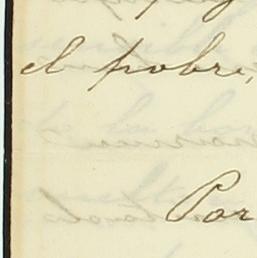 el pobre,
Por